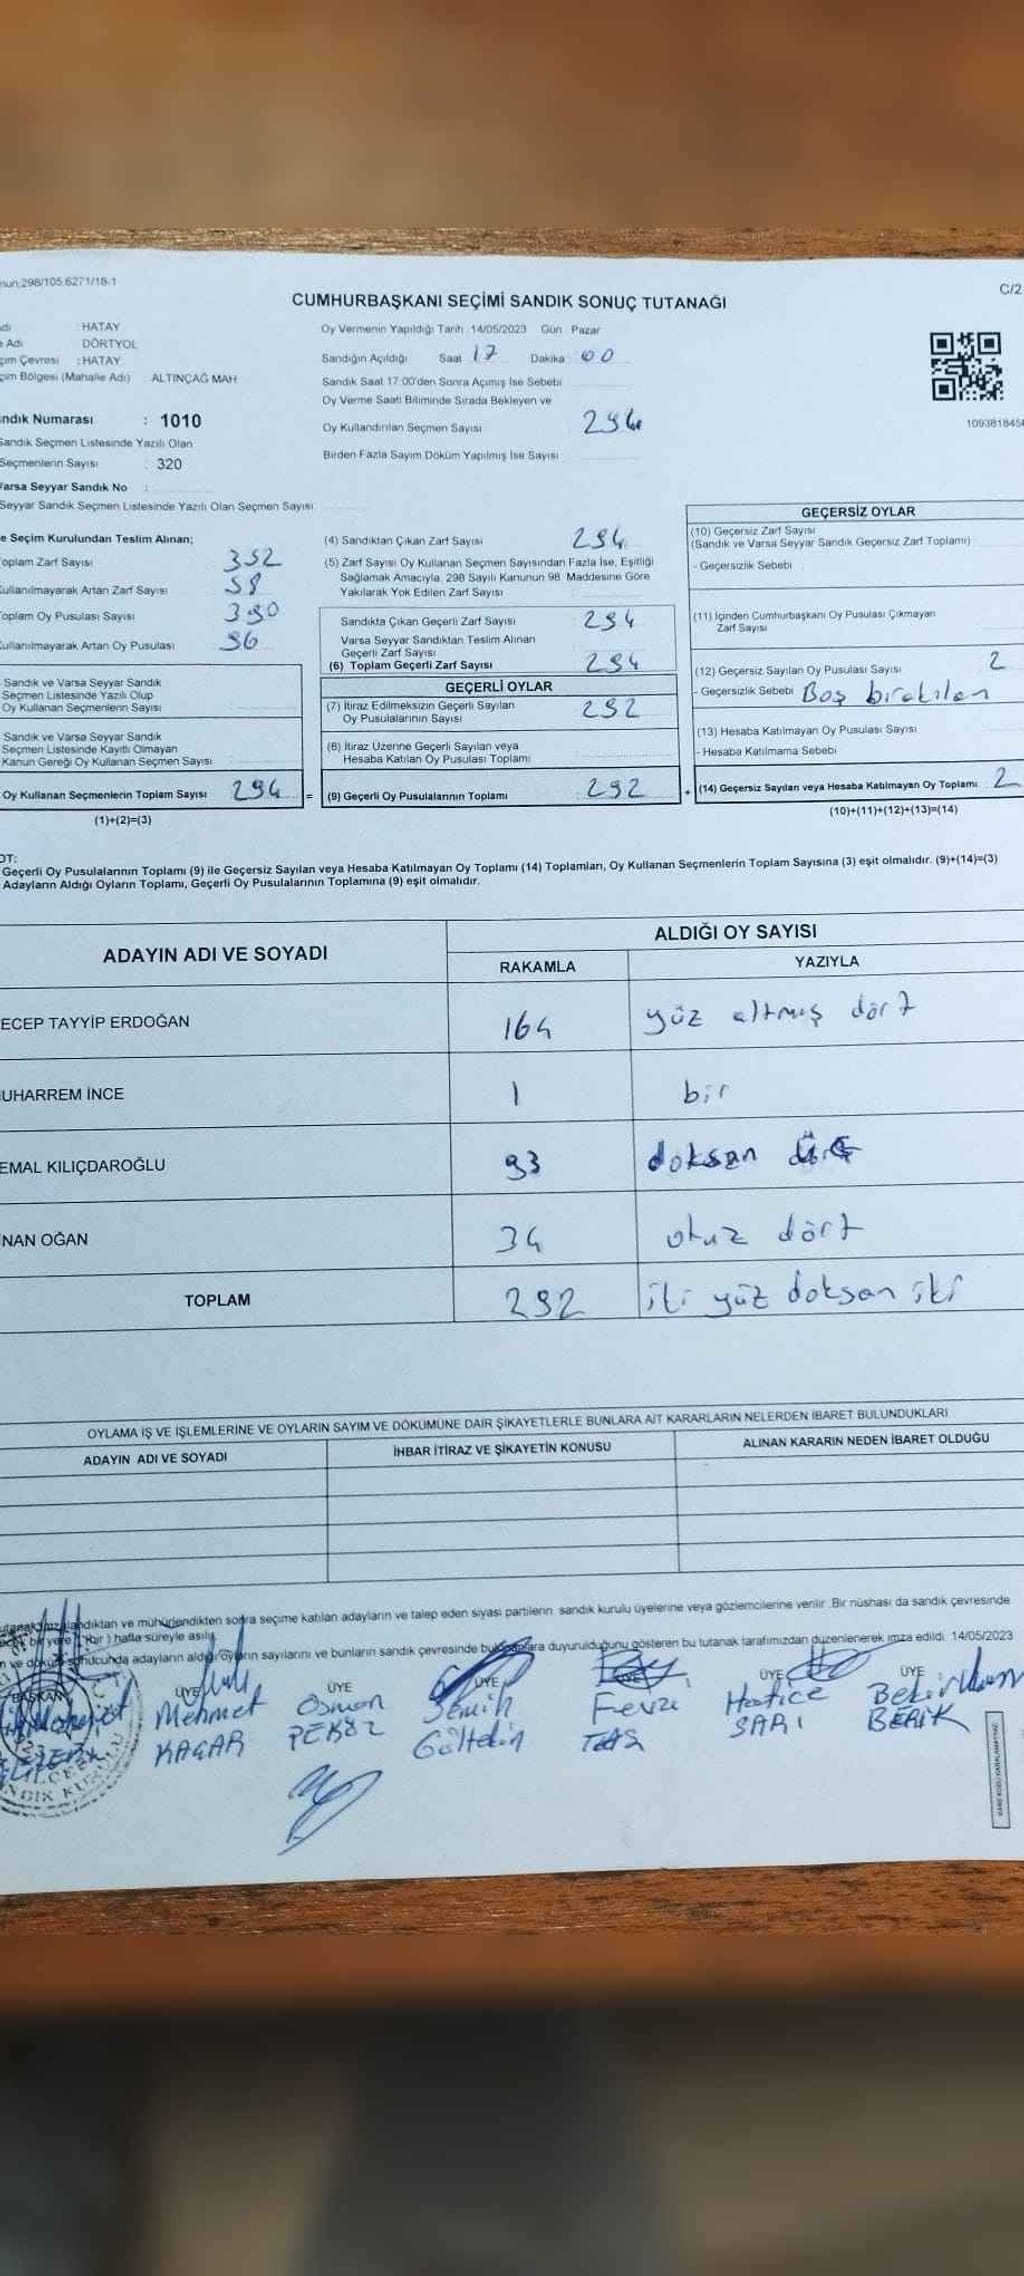 298/105,6271/18-1
C/2
CUMHURBAŞKANI SEÇİMİ SANDIK SONUÇ TUTANAĞI
: HATAY
Adı : DÖRTYOL
Çevresi : HATAY
Bölgesi (Mahalle Adı) : ALTINÇAĞ MAH
Oy Vermenin Yapıldığı Tarih :14/05/2023 Gün : Pazar
Sandığın Açıldığı Saat 17 Dakika : 00
Sandık Saat 17:00'den Sonra Açımış İse Sebebi
Oy Verme Saati Bitiminde Sırada Bekleyen ve
Oy Kullandırılan Seçmen Sayısı 294
Birden Fazla Sayım Döküm Yapılmış İse Sayısı
109381845
ndık Numarası : 1010
Sandık Seçmen Listesinde Yazılı Olan
Seçmenlerin Sayısı : 320
Varsa Seyyar Sandık No :
Seyyar Sandık Seçmen Listesinde Yazılı Olan Seçmen Sayısı
e Seçim Kurulundan Teslim Alınan;
oplam Zarf Sayısı 352
ullanılmayarak Artan Zarf Sayısı 58
oplam Oy Pusulası Sayısı 390
Kullanılmayarak Artan Oy Pusulası 96
Sandık ve Varsa Seyyar Sandık
Seçmen Listesinde Yazılı Olup
Oy Kullanan Seçmenlerin Sayısı
Sandık ve Varsa Seyyar Sandık
Seçmen Listesinde Kayıtlı Olmayan
Kanun Gereği Oy Kullanan Seçmen Sayısı
Oy Kullanan Seçmenlerin Toplam Sayısı 294 =
(1)+(2)=(3)
(4) Sandıktan Çıkan Zarf Sayısı 294
(5) Zarf Sayısı Oy Kullanan Seçmen Sayısından Fazla İse, Eşitliği
Sağlamak Amacıyla, 298 Sayılı Kanunun 98. Maddesine Göre
Yakılarak Yok Edilen Zarf Sayısı
Sandıkta Çıkan Geçerli Zarf Sayısı 294
Varsa Seyyar Sandıktan Teslim Alınan
Geçerli Zarf Sayısı
(6) Toplam Geçerli Zarf Sayısı 294
GEÇERLİ OYLAR
(7) İtiraz Edilmeksizin Geçerli Sayılan
Oy Pusulalarının Sayısı 292
(8) İtiraz Üzerine Geçerli Sayılan veya
Hesaba Katılan Oy Pusulası Toplamı
(9) Geçerli Oy Pusulalarının Toplamı : 292 +
GEÇERSİZ OYLAR
(10) Geçersiz Zarf Sayısı
(Sandık ve Varsa Seyyar Sandık Geçersiz Zarf Toplamı)
- Geçersizlik Sebebi
(11) İçinden Cumhurbaşkanı Oy Pusulası Çıkmayan
Zarf Sayısı
(12) Geçersiz Sayılan Oy Pusulası Sayısı 2
- Geçersizlik Sebebi Boş bırakılan
(13) Hesaba Katılmayan Oy Pusulası Sayısı
- Hesaba Katılmama Sebebi
(14) Geçersiz Sayılan veya Hesaba Katılmayan Oy Toplamı 2
(10)+(11)+(12)+(13)=(14)
OT:
Geçerli Oy Pusulalarının Toplamı (9) ile Geçersiz Sayılan veya Hesaba Katılmayan Oy Toplamı (14) Toplamları, Oy Kullanan Seçmenlerin Toplam Sayısına (3) eşit olmalıdır. (9)+(14)=(3)
Adayların Aldığı Oyların Toplamı, Geçerli Oy Pusulalarının Toplamına (9) eşit olmalıdır.
ADAYIN ADI VE SOYADI
ALDIĞI OY SAYISI
RAKAMLA YAZIYLA
ECEP TAYYİP ERDOĞAN 164 yüz altmış dört
UHARREM İNCE 1 bir
EMAL KILIÇDAROĞLU 93 doksan
NAN OĞAN 34 otuz dört
TOPLAM 292 iki yüz doksan iki
OYLAMA İŞ VE İŞLEMLERİNE VE OYLARIN SAYIM VE DÖKÜMÜNE DAİR ŞİKAYETLERLE BUNLARA AİT KARARLARIN NELERDEN İBARET BULUNDUKLARI
ADAYIN ADI VE SOYADI İHBAR İTİRAZ VE ŞİKAYETİN KONUSU ALINAN KARARIN NEDEN İBARET OLDUĞU
ve mühürlendikten sonra seçime katılan adayların ve talep eden siyasi partilerin sandık kurulu üyelerine veya gözlemcilerine verilir .Bir nüshası da sandık çevresinde
bir yere 1(bir) hafta süreyle asılır.
sonucunda adayların aldığı oyların sayılarını ve bunların sandık çevresinde bulunanlara duyurulduğunu gösteren bu tutanak tarafımızdan düzenlenerek imza edildi. 14/05/2023
BAŞKAN ÜYE ÜYE ÜYE ÜYE ÜYE ÜYE
Mehmet Osman Semih Fevzi Hatice Bekir
KAÇAR PEKÖZ Gültekin TAŞ SARI BERİK
KARE KODU KARALAMAYINIZ